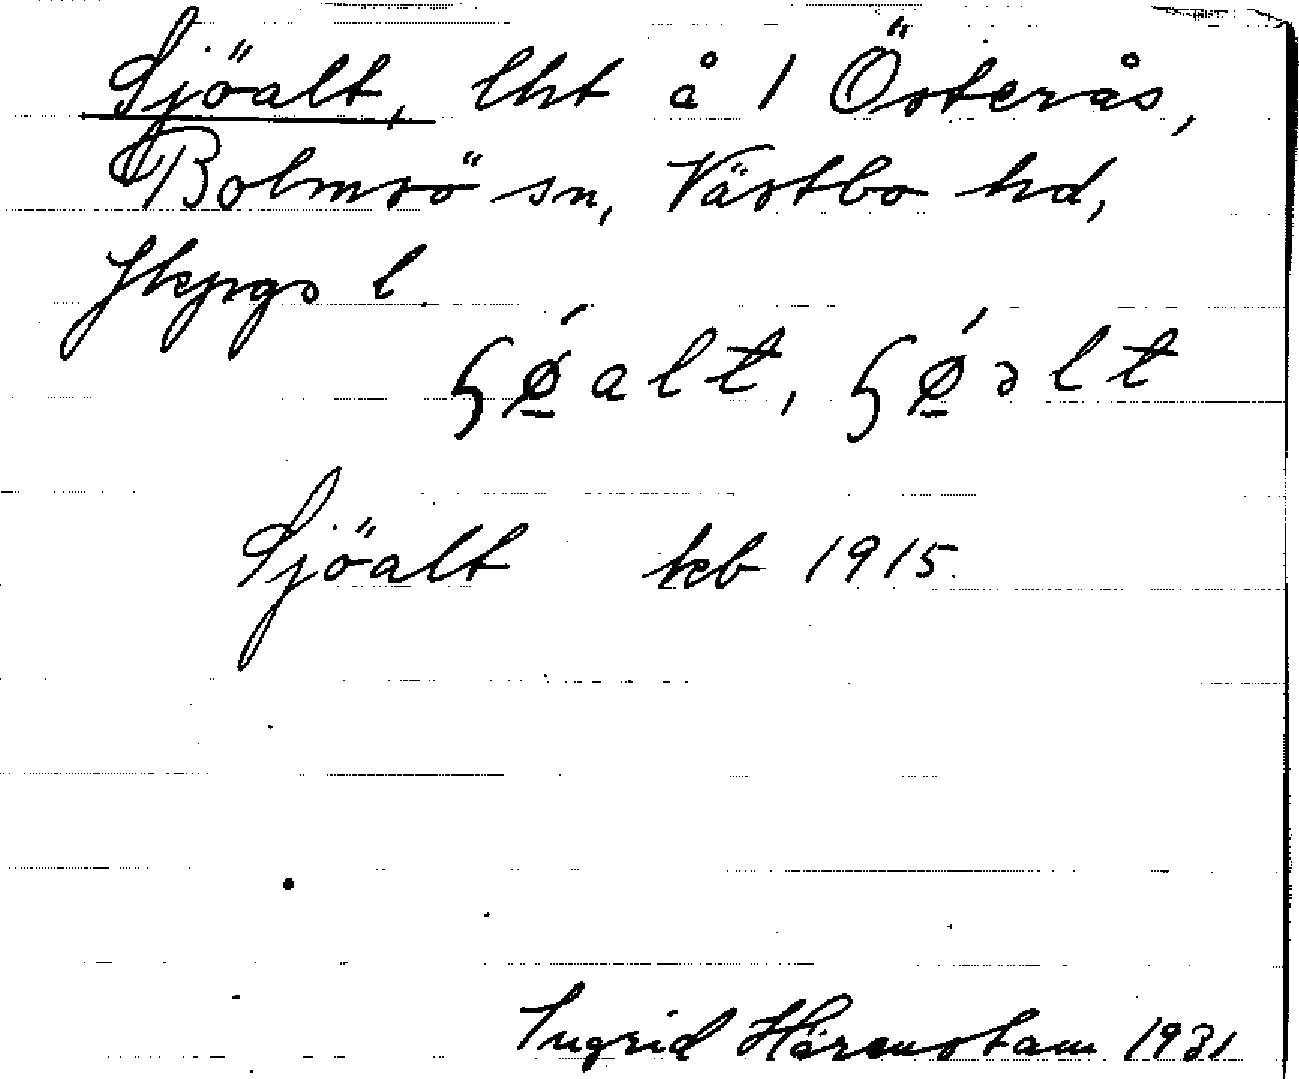 Sjöalt, lht å 1 Österås,
Bolmsö sn, Västbo hd,
Jkpgs l.
ɧǿ̱alt, ɧǿ̱əlt
Sjöalt kb 1915.
Ingrid Härenstam 1931